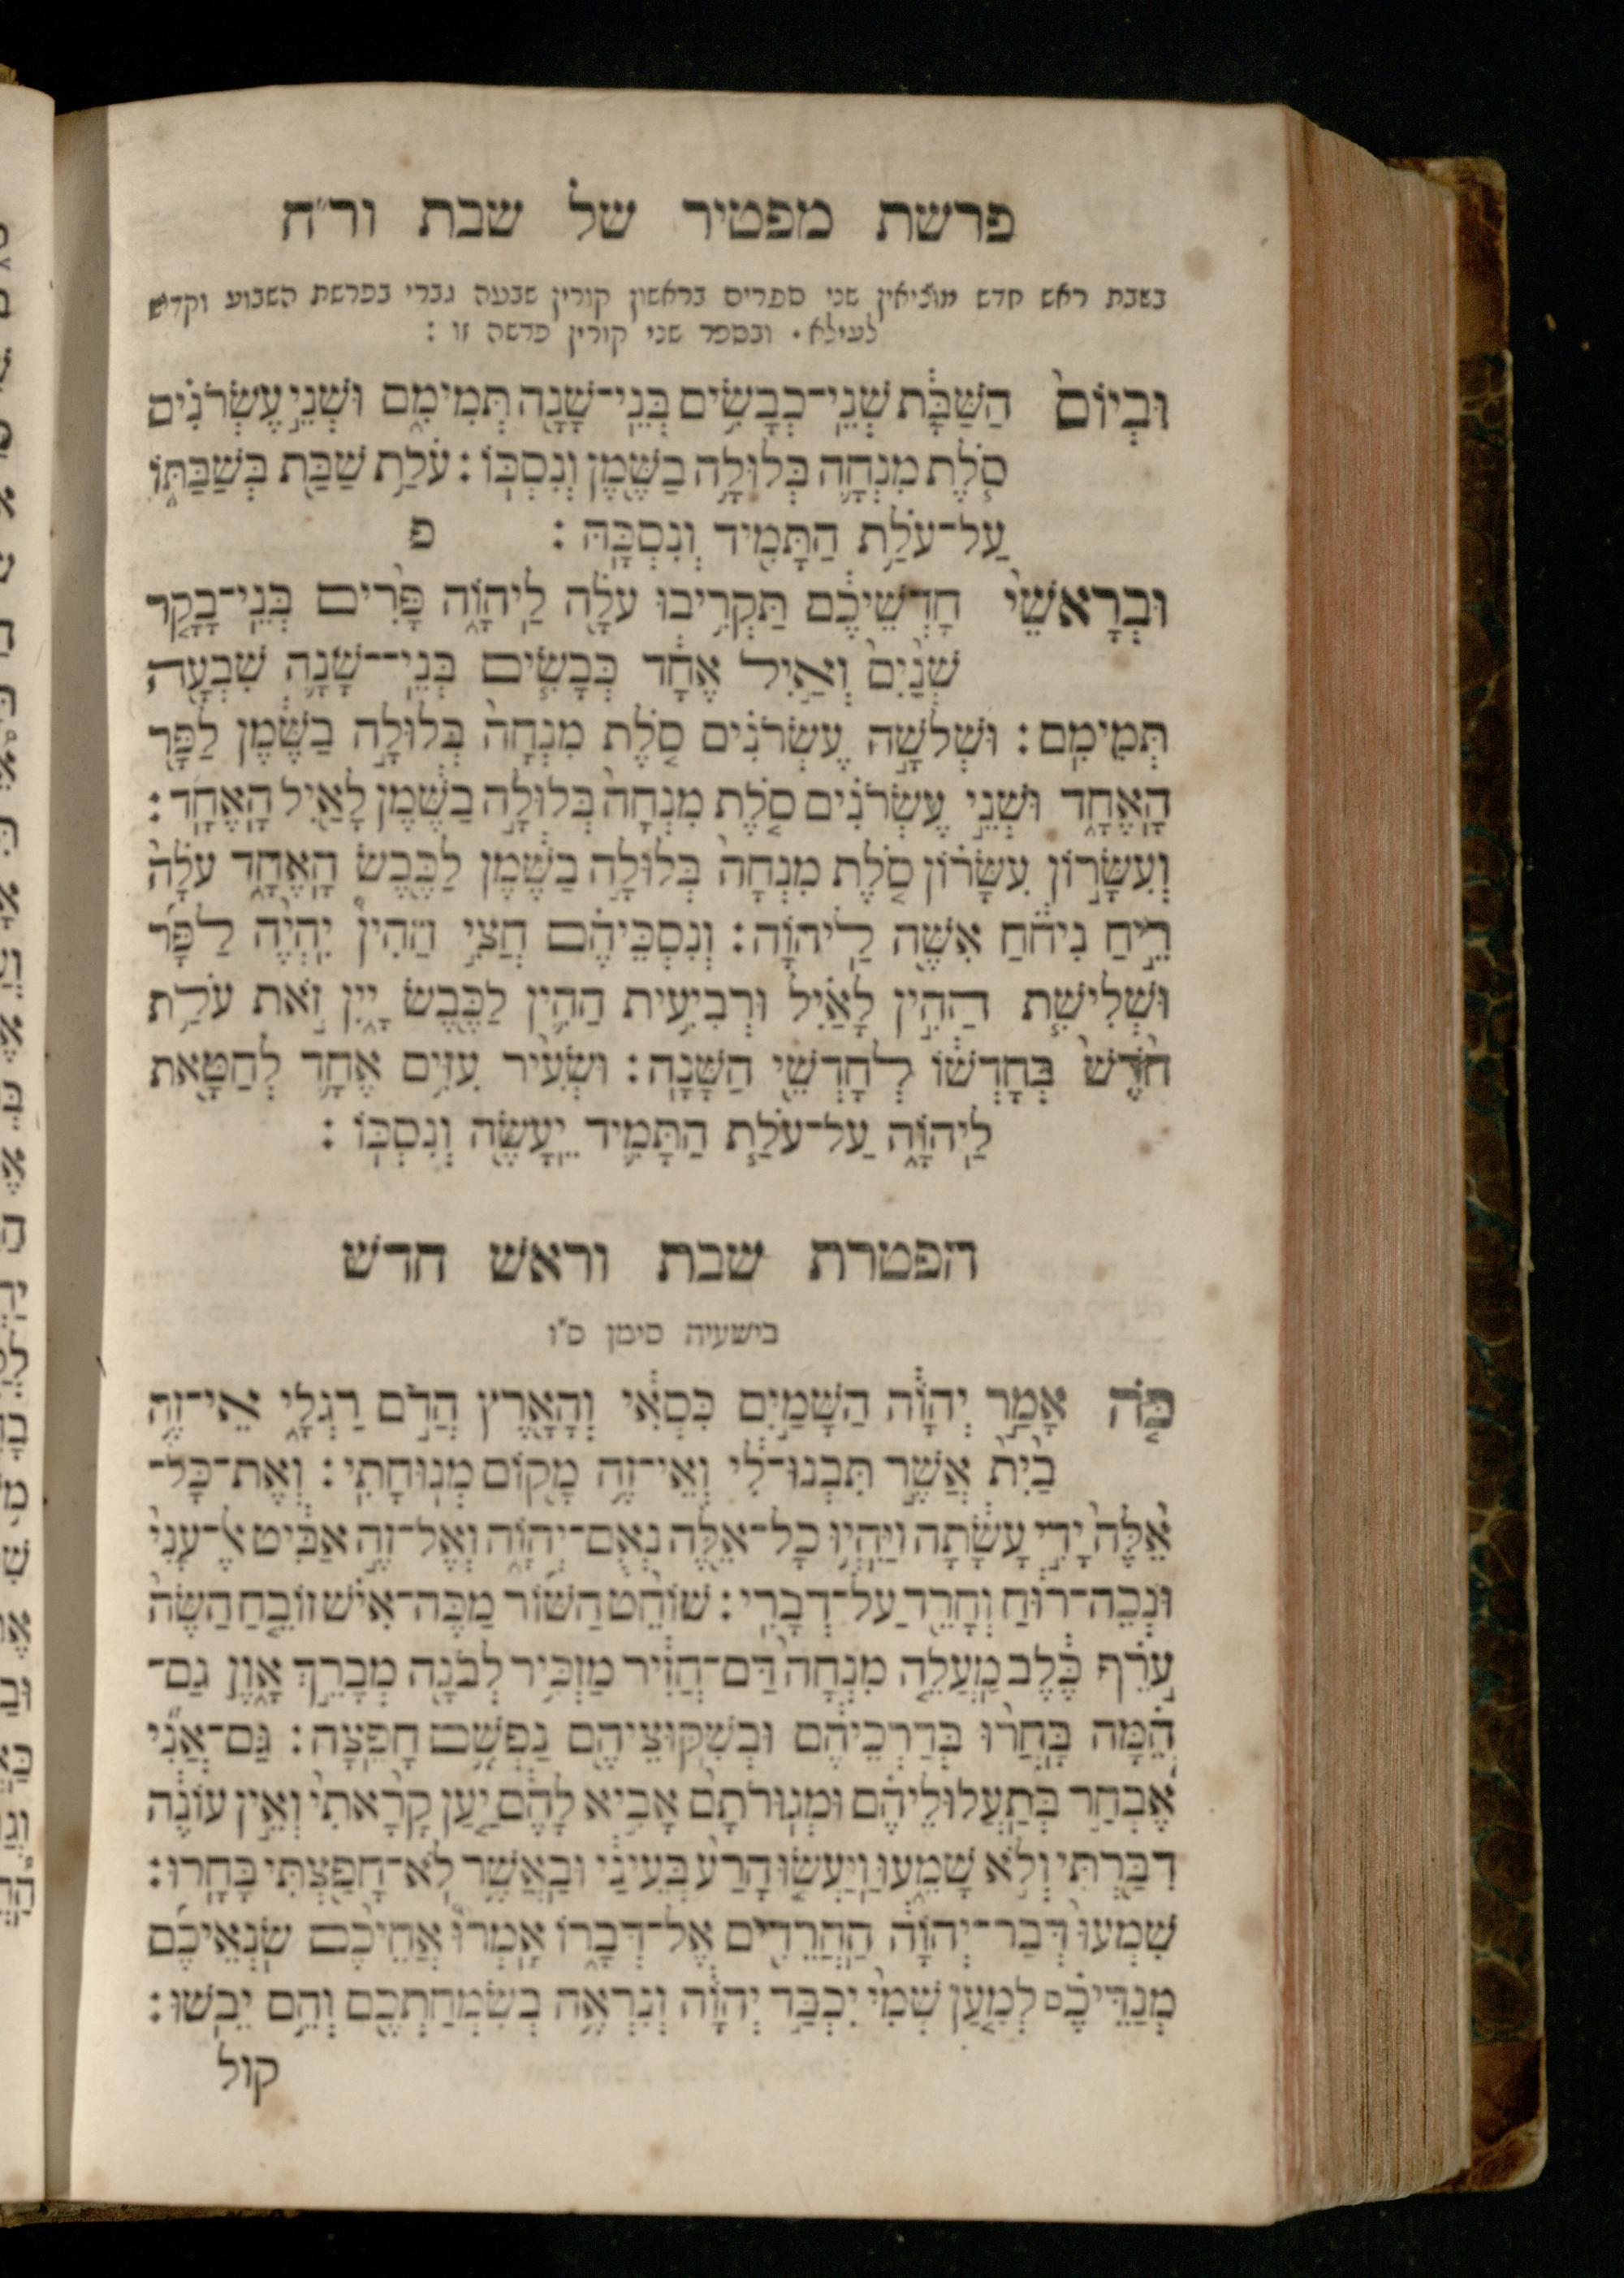 פרשת מפטיר של שבת ור״ח
בשבת ראש חדש מוציאין שני ספרים בראשון קורין שבעה גברי בפרשת השבוע וקדיש
לעילא. ובספר שני קורין פרשה זו :
וּבְיוֹם֙ הַשַּׁבָּ֔ת שְׁנֵֽי־כְבָשִׂ֥ים בְּנֵֽי־שָׁנָ֖ה תְּמִימִ֑ם וּשְׁנֵ֣י עֶשְׂרֹנִ֗ים
סֹ֧לֶת מִנְחָ֛ה בְּלוּלָ֥ה בַשֶּׁ֖מֶן וְנִסְכּֽוֹ : עֹלַ֥ת שַׁבַּ֖ת בְּשַׁבַּתּ֑וֹ
עַל־עֹלַ֥ת הַתָּמִ֖יד וְנִסְכָּֽהּ : פ
וּבְרָאשֵׁי֙ חָדְשֵׁיכֶ֔ם תַּקְרִ֥יבוּ עֹלָ֖ה לַיהוָֹ֑ה פָּרִ֨ים בְּנֵֽי־בָקָ֤ר
שְׁנַ֙יִם֙ וְאַ֣יִל אֶחָ֔ד כְּבָשִׂ֧ים בְּנֵֽי־שָׁנָ֛ה שִׁבְעָ֖ה
תְּמִימִֽם : וּשְׁלֹשָׁ֣ה עֶשְׂרֹנִ֗ים סֹ֤לֶת מִנְחָה֙ בְּלוּלָ֣ה בַשֶּׁ֔מֶן לַפָּ֖ר
הָֽאֶחָ֑ד וּשְׁנֵ֣י עֶשְׂרֹנִ֗ים סֹ֤לֶת מִנְחָה֙ בְּלוּלָ֣ה בַשֶּׁ֔מֶן לָאַ֖יִל הָֽאֶחָֽד :
וְעִשָּׂרֹ֣ון עִשָּׂרֹ֗ון סֹ֤לֶת מִנְחָה֙ בְּלוּלָ֣ה בַשֶּׁ֔מֶן לַכֶּ֖בֶשׂ הָֽאֶחָ֑ד עֹלָה֙
רֵ֣יחַ נִיחֹ֔חַ אִשֶּׁ֖ה לַֽיהוָֹֽה : וְנִסְכֵּיהֶ֗ם חֲצִ֣י הַהִין֩ יִֽהְיֶ֨ה לַפָּ֜ר
וּשְׁלִישִׁ֧ת הַהִ֣ין לָאַ֗יִל וּרְבִיעִ֥ית הַהִ֛ין לַכֶּ֖בֶשׂ יָ֑יִן זֹ֣את עֹלַ֥ת
חֹ֙דֶשׁ֙ בְּחָדְשׁ֔וֹ לְחָדְשֵׁ֖י הַשָּׁנָֽה : וּשְׂעִ֨יר עִזִּ֥ים אֶחָ֛ד לְחַטָּ֖את
לַֽיהוָֹ֑ה עַל־עֹלַ֧ת הַתָּמִ֛יד יֵעָשֶׂ֖ה וְנִסְכּֽוֹ :
הפטרת שבת וראש חדש
בישעיה סימן ס״ו
כֹּ֚ה אָמַ֣ר יְהוָֹ֔ה הַשָּׁמַ֣יִם כִּסְאִ֔י וְהָאָ֖רֶץ הֲדֹ֣ם רַגְלָ֑י אֵי־זֶ֥ה
בַ֙יִת֙ אֲשֶׁ֣ר תִּבְנוּ־לִ֔י וְאֵי־זֶ֥ה מָק֖וֹם מְנֽוּחָתִֽי : וְאֶת־כָּל־
אֵ֙לֶּה֙ יָדִ֣י עָשָׂ֔תָה וַיִּֽהְי֥וּ כָל־אֵ֖לֶּה נְאֻם־יְהוָֹ֑ה וְאֶל־זֶ֣ה אַבִּ֔יט אֶל־עָנִי֙
וּנְכֵה־ר֔וּחַ וְחָרֵ֖ד עַל־דְּבָרִֽי : שׁוֹחֵ֨ט הַשּׁ֜וֹר מַכֵּה־אִ֗ישׁ זוֹבֵ֤חַ הַשֶּׂה֙
עֹ֣רֵֽף כֶּ֔לֶב מַֽעֲלֵ֤ה מִנְחָה֙ דַּם־חֲזִ֔יר מַזְכִּ֥יר לְבֹנָ֖ה מְבָ֣רֵֽךְ אָ֑וֶן גַּם־
הֵ֗מָּה בָּֽחֲרוּ֙ בְּדַרְכֵיהֶ֔ם וּבְשִׁקּֽוּצֵיהֶ֖ם נַפְשָׁ֥ם חָפֵֽצָה : גַּם־אֲנִ֞י
אֶבְחַ֣ר בְּתַֽעֲלוּלֵיהֶ֗ם וּמְגֽוּרֹתָם֙ אָבִ֣יא לָהֶ֔ם יַ֤עַן קָרָ֙אתִי֙ וְאֵ֣ין עוֹנֶ֔ה
דִּבַּ֖רְתִּי וְלֹ֣א שָׁמֵ֑עוּ וַיַּֽעֲשׂ֤וּ הָרַע֙ בְּעֵינַ֔י וּבַֽאֲשֶׁ֥ר לֹֽא־חָפַ֖צְתִּי בָּחָֽרוּ :
שִׁמְעוּ֙ דְּבַר־יְהוָֹ֔ה הַֽחֲרֵדִ֖ים אֶל־דְּבָר֑וֹ אָֽמְרוּ֩ אֲחֵיכֶ֨ם שֹֽׂנְאֵיכֶ֜ם
מְנַדֵּיכֶ֗ם לְמַ֤עַן שְׁמִי֙ יִכְבַּ֣ד יְהוָֹ֔ה וְנִרְאֶ֥ה בְשִׂמְחַתְכֶ֖ם וְהֵ֥ם יֵבֹֽשׁוּ :
קול